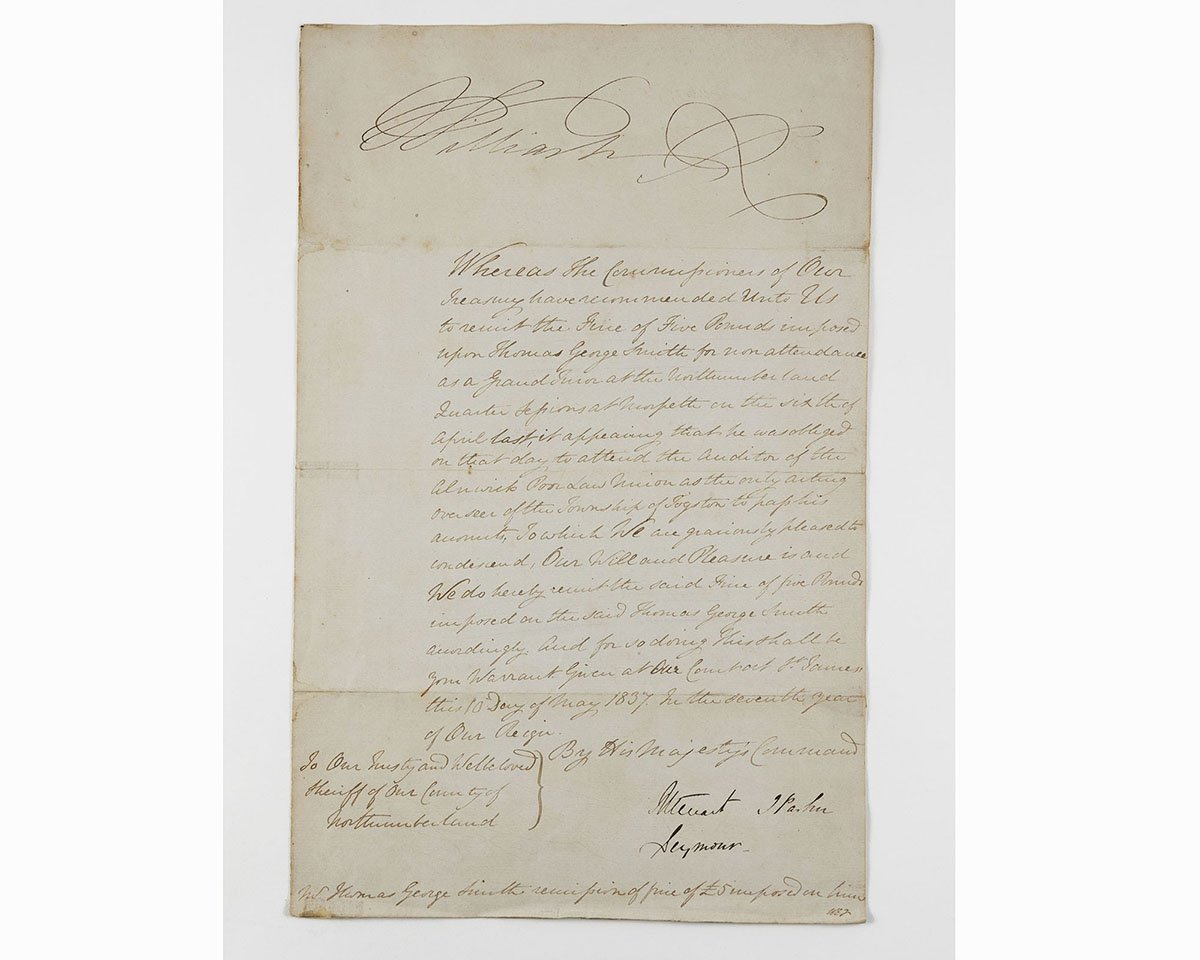 William R
Whereas the Commissioners of Our
Treasury have recommended Unto Us
to remit the Fine of Five Pounds imposed
upon Thomas George Smith for non attendance
as a Grand Juror at the Northumberland
Quarter Sessions at Morpeth on the sixth of
April last, it appearing that he was obliged
on that day to attend the Auditor of the
Alnwick Poor Law Union as the only acting
Overseer of the Township of Togston to pass his
accounts, To which We are graciously pleased to
condescend, Our Will and Pleasure is and
We do hereby remit the said Fine of five Pounds
imposed on the said Thomas George Smith
accordingly, And for so doing This shall be
your Warrant Given at Our Court at St. James
this 10 Day of May 1837. In the seventh year
of Our Reign.
By His Majesty's Command
To Our Trusty and Wellbeloved
Sheriff of Our County of
Northumberland
Steuart J Parker
Seymour
Thomas George Smith remission of fine of £5 imposed on him